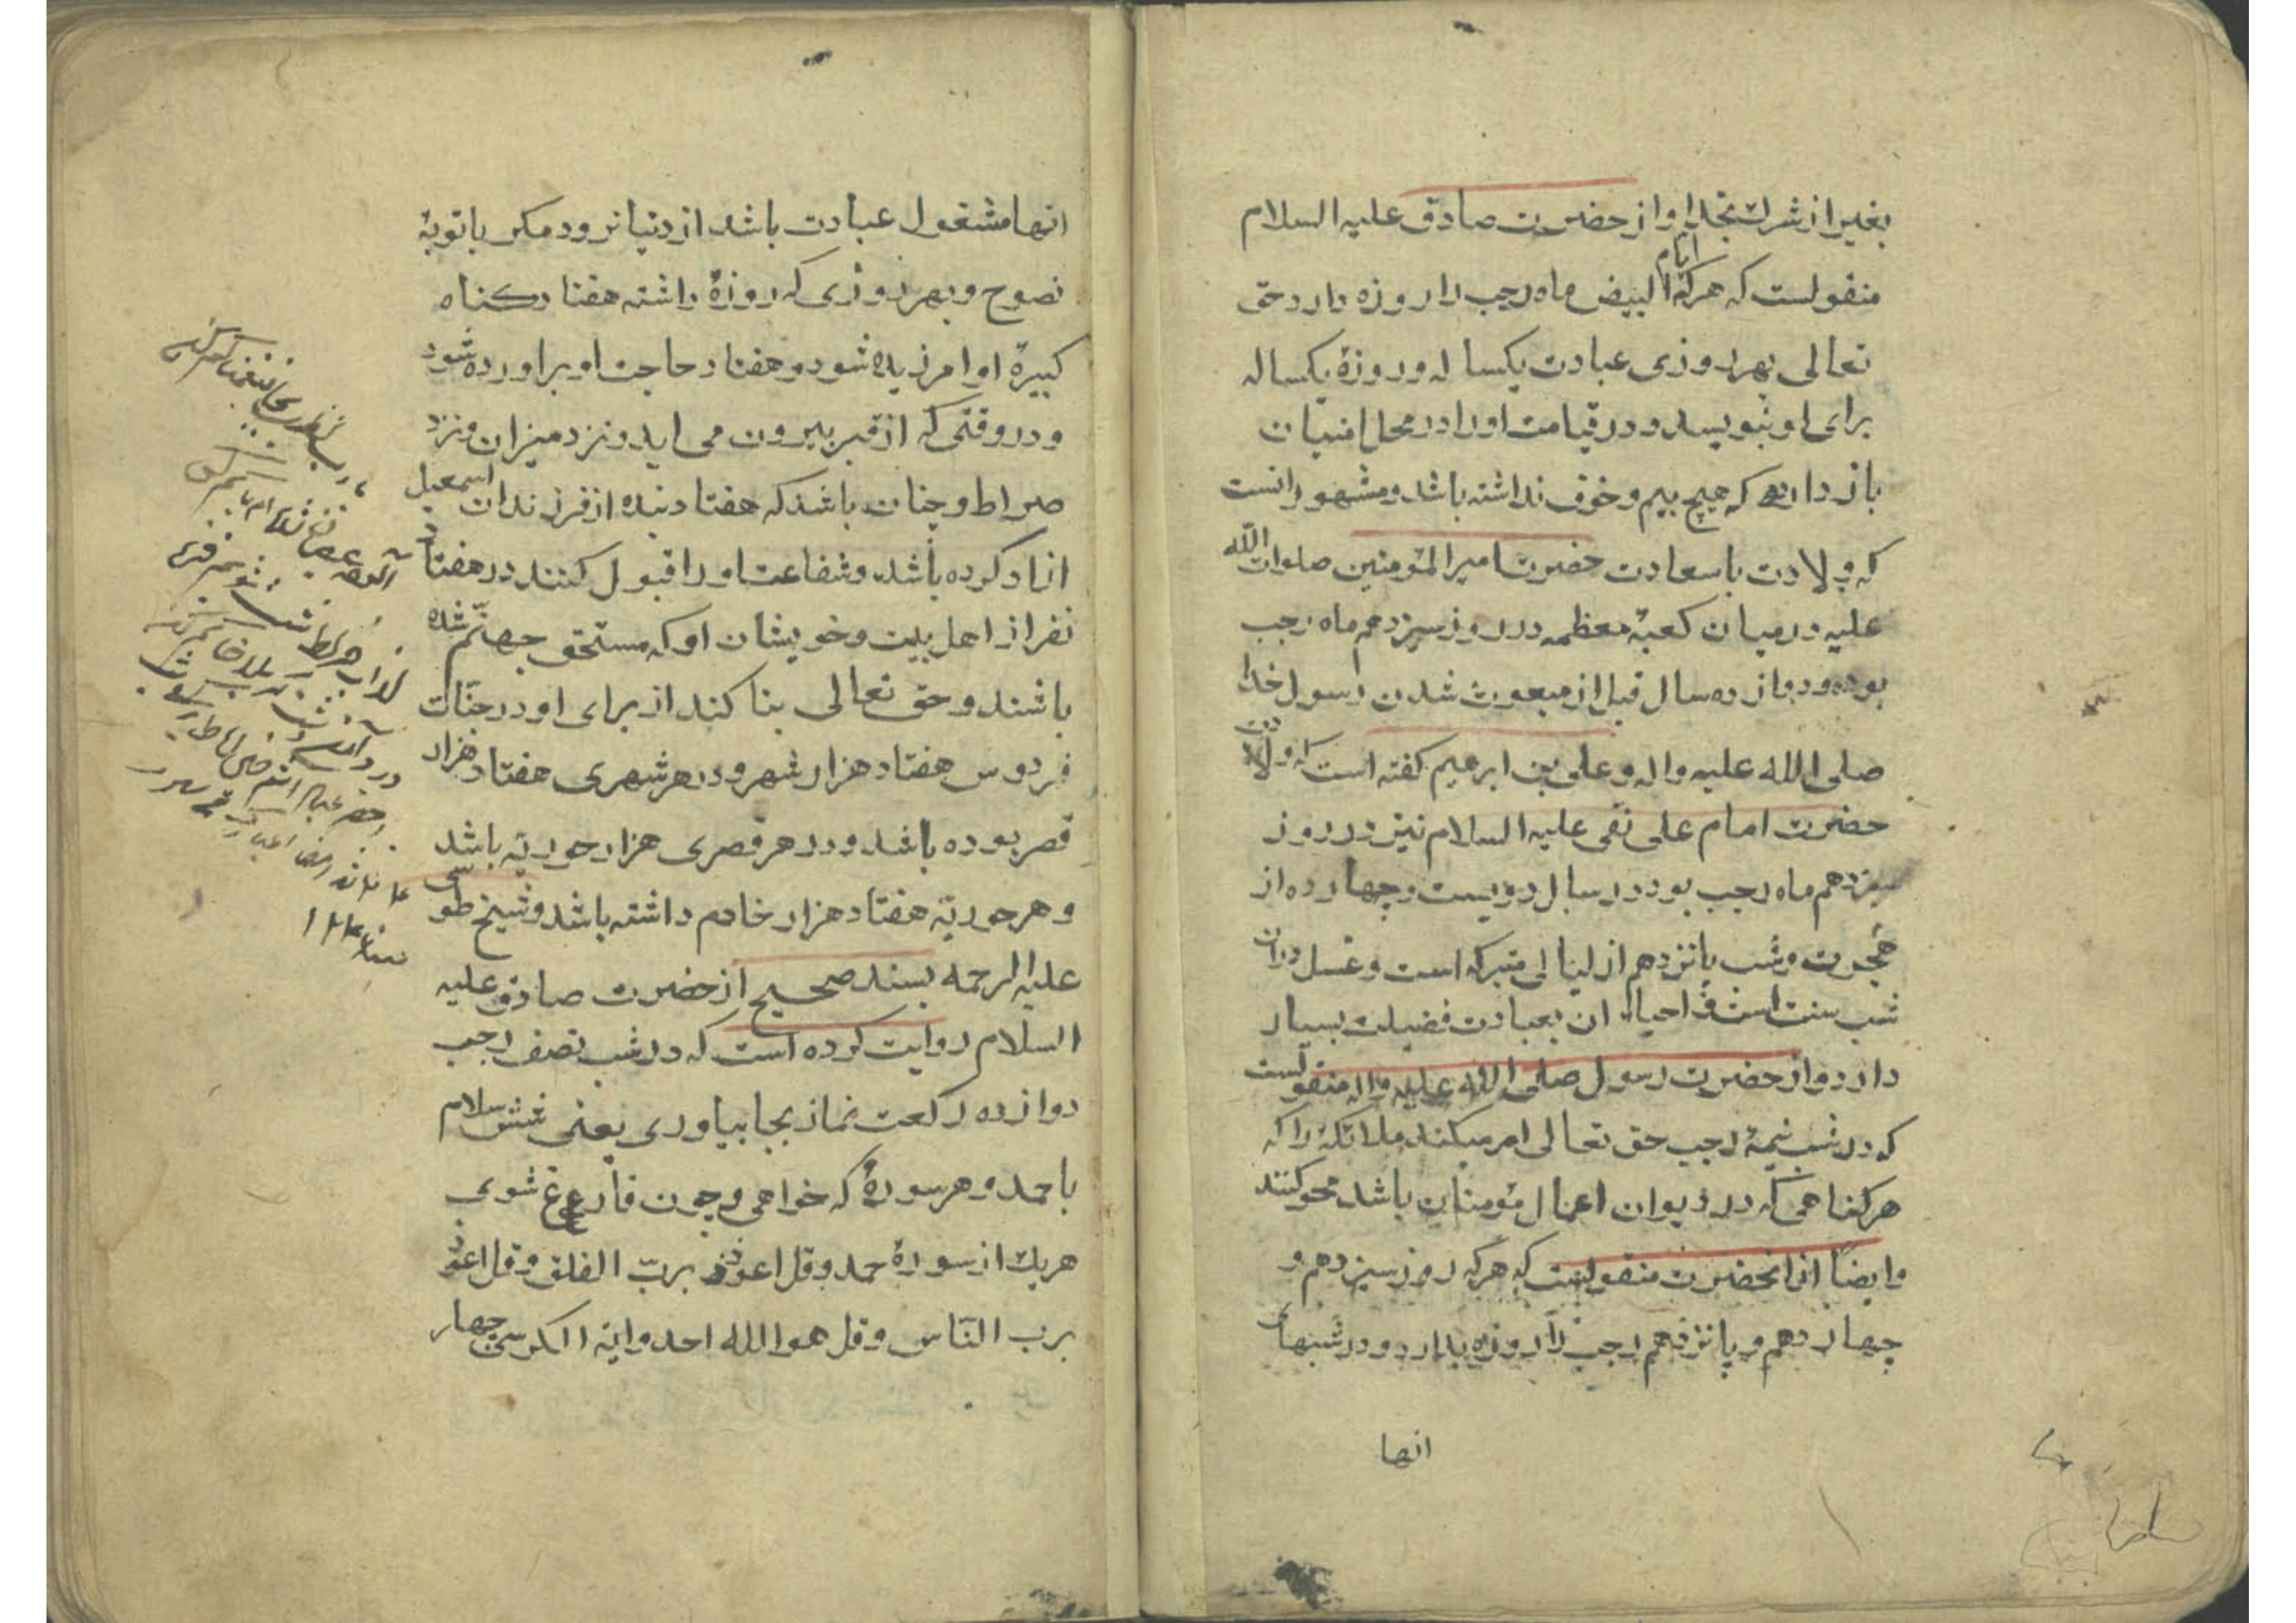 بغیر از شرک بخدا و از حضرت صادق علیه السلام
منقولست که هرکه ایام البیض ماه رجب را روزه دارد حق
تعالی بهر روزی عبادت یکساله و روزهٔ یکساله
برای او بنویسد و در قیامت او را در محل امنیان
باز دارد که هیچ بیم و خوف نداشته باشد و مشهور انست
که ولادت با سعادت حضرت امیر المؤمنین صلوات الله
علیه در میان کعبهٔ معظمه در روز سیزدهم ماه رجب
بوده و دوازده سال قبل از مبعوث شدن رسول خدا
صلی الله علیه واله و علی بن ابرهیم کفته است که ولادت
حضرت امام علی نقی علیه السلام نیز در روز
سیزدهم ماه رجب بود در سال دویست و چهارده از
هجرت و شب پانزدهم از لیالی متبرکه است و غسل در ان
شب سنت است و احیاء ان بعبادت فضیلت بسیار
دارد و از حضرت رسول صلی الله علیه واله منقولست
که در شب نیمهٔ رجب حق تعالی امر میکند ملائکه را که
هر کناهی که در دیوان اعمال مؤمنان باشد محو کنند
وایضاً از انحضرت منقولست که هرکه روز سیزدهم و
چهاردهم و پانزدهم رجب را روزه بدارد و در شبهای
انها
انها مشغول عبادت باشد از دنیا نرود مکر با توبهٔ
نصوح و بهر روزی که روزهٔ داشته هفتاد کناه
کبیرهٔ او امرزیده شود و هفتاد حاجت او براورده شود
و در وقتی که از قبر بیرون می اید و نزد میزان و نزد
صراط و چنان باشد که هفتاد بنده از فرزندان اسمعیل
ازاد کرده باشد و شفاعت او را قبول کنند در هفتاد
نفر از اهل بیت و خویشان او که مستحق جهنّم شده
باشند و حق تعالی بنا کند از برای او در جنّات
فردوس هفتاد هزار شهر و در هر شهری هفتاد هزار
قصر بوده باشد و در هر قصری هزار حوریّه باشد
و هر حوریّه هفتاد هزار خادم داشته باشد و شیخ طوسی
علیه الرحمه بسند صحیح از حضرت صادق علیه
السلام روایت کرده است که در شب نصف رجب
دوازده رکعت نماز بجا بیاوری یعنی شش سلام
با حمد و هر سورهٔ که خواهی و چون فارغ شوی
هریک از سورهٔ حمد و قل اعوذ بربّ الفلق و قل اعوذ
برب النّاس و قل هو الله احد وایة الکرسی چهار